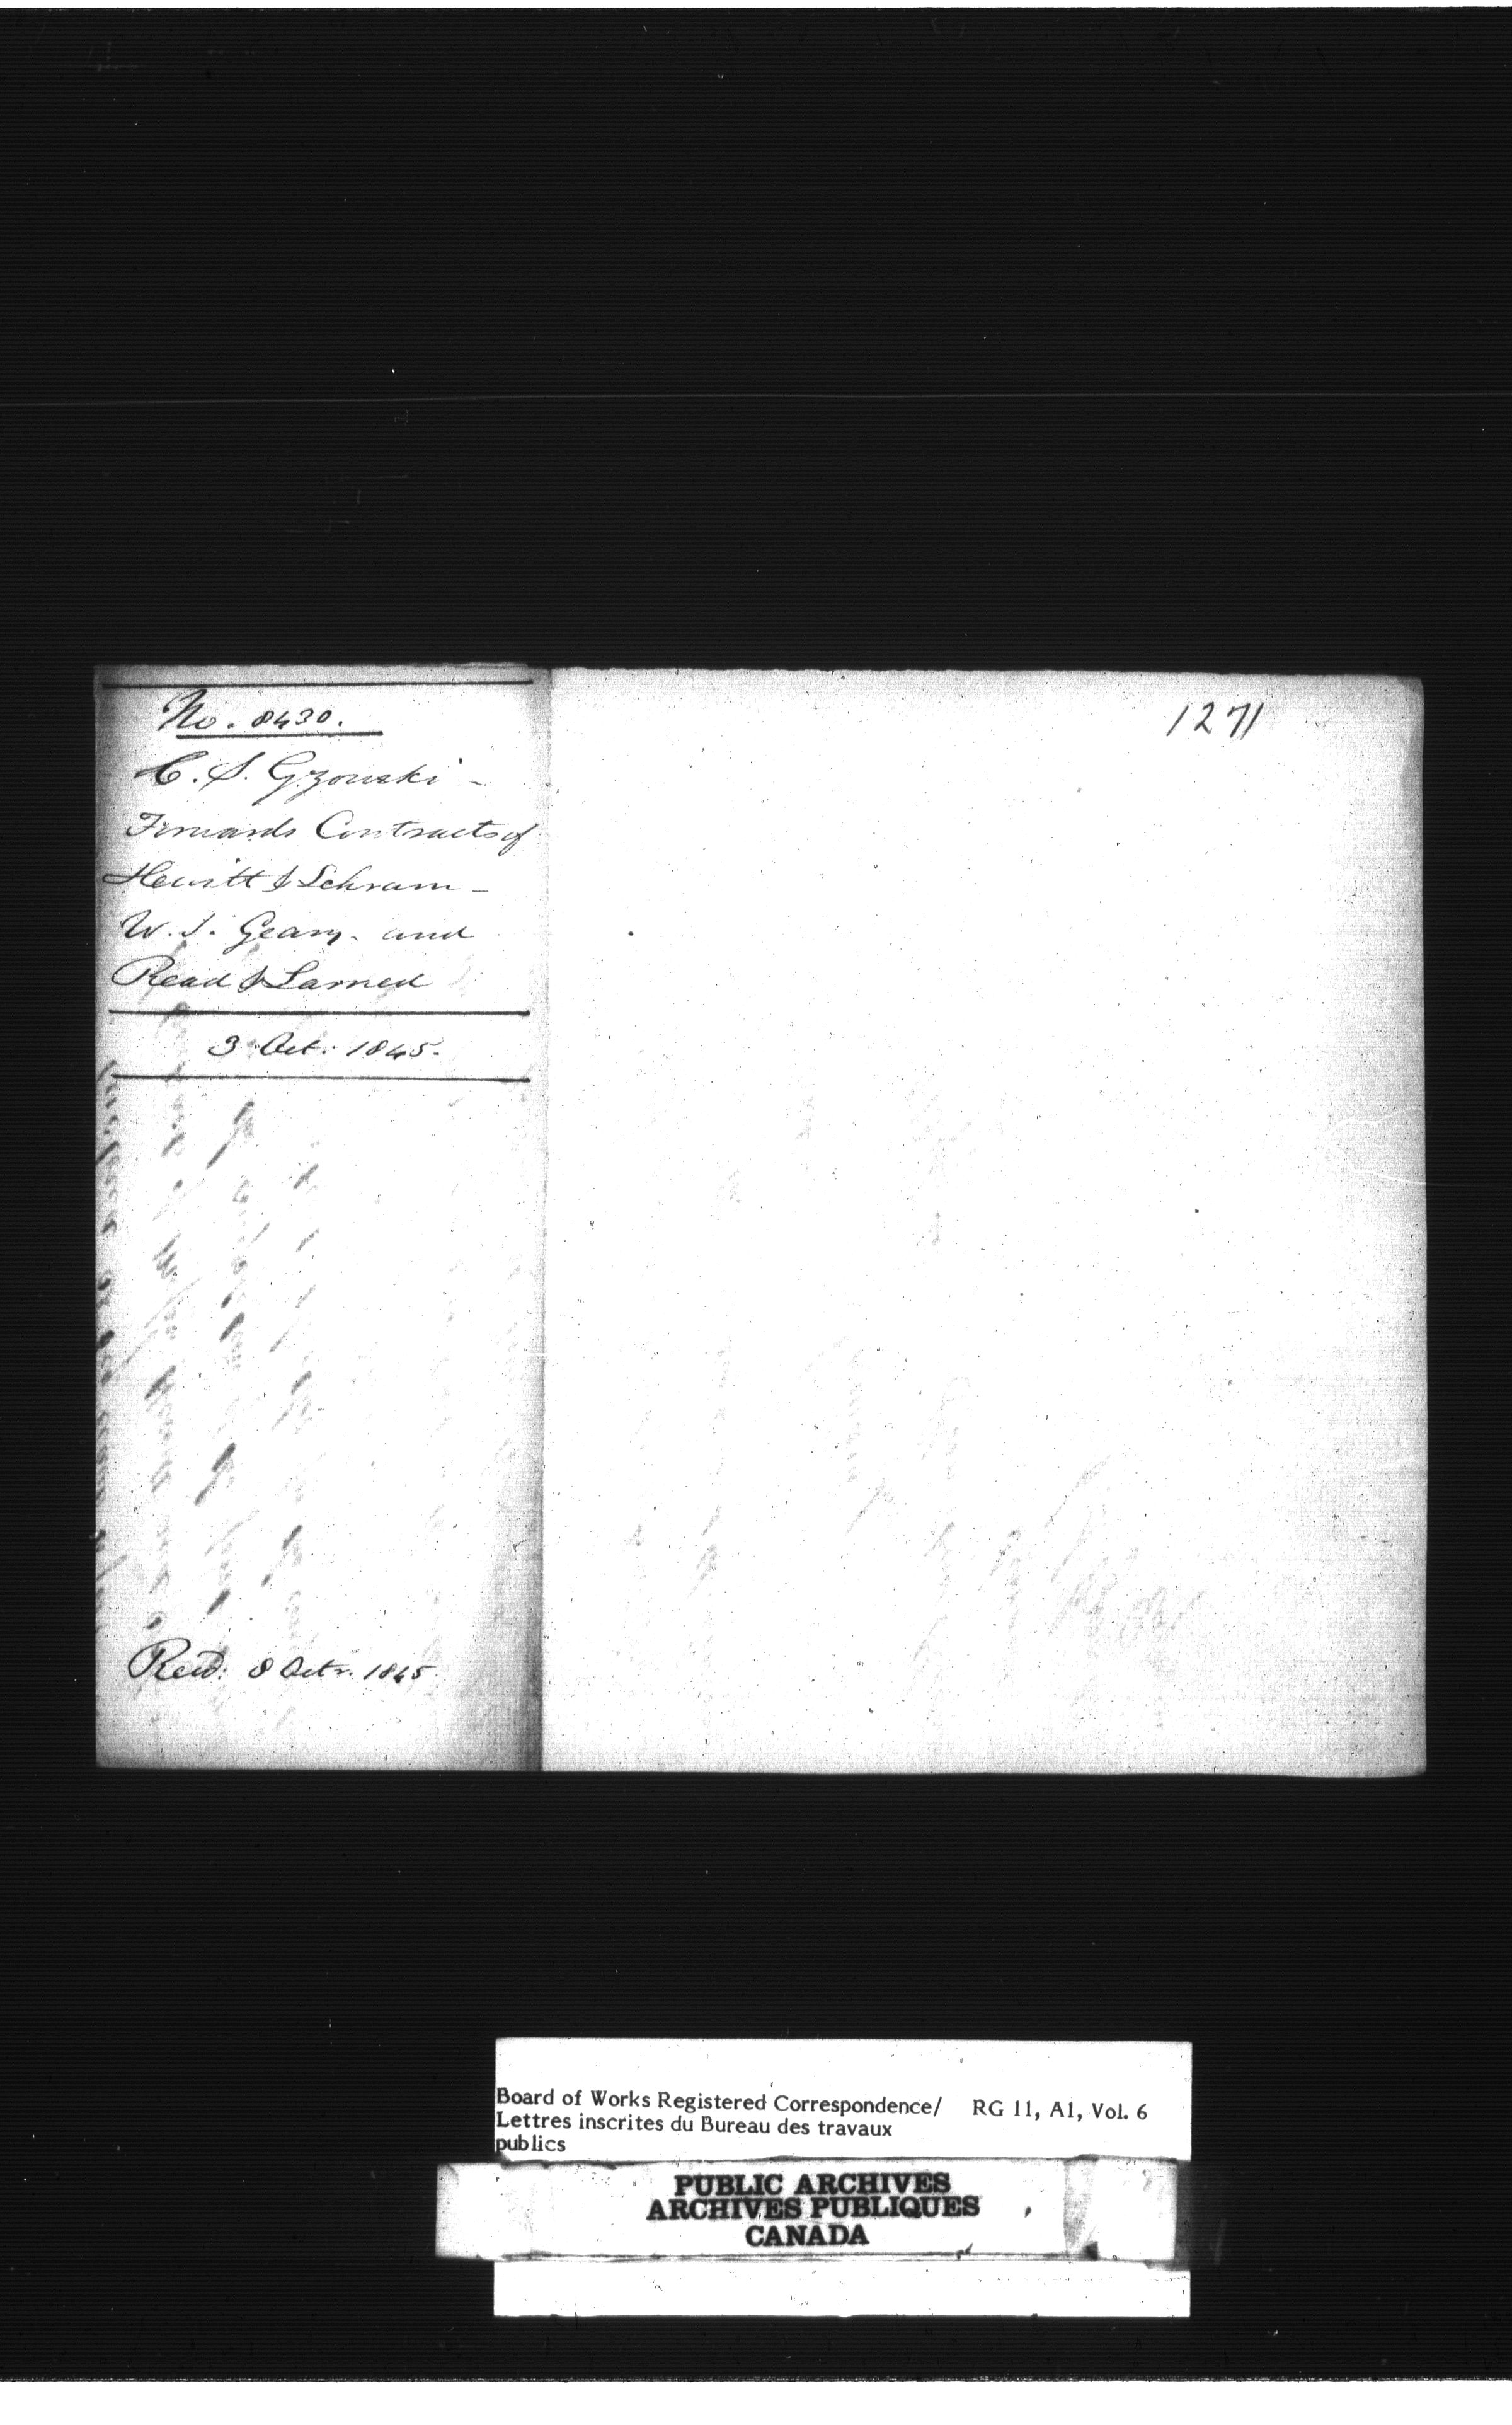 No. 8430.
C. S. Gzowski -
Forwards Contracts of
Hewitt & Schram -
W. J. Geary - and
Read & Larned
3 Oct: 1845.
Recd: 8 Octr. 1845.
1271
Board of Works Registered Correspondence/ RG 11, A1, Vol. 6
Lettres inscrites du Bureau des travaux
publics
PUBLIC ARCHIVES
ARCHIVES PUBLIQUES
CANADA